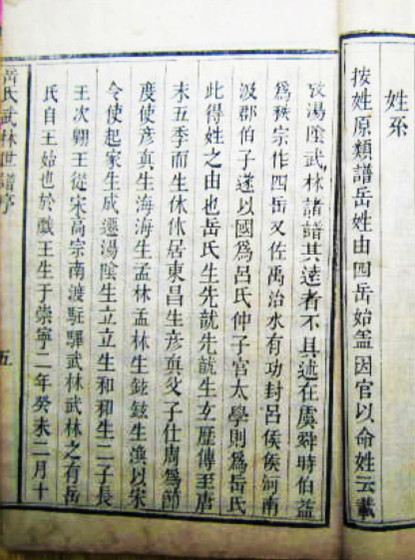 姓系
按姓原類譜岳姓由四岳始葢因官以命姓云載
攷湯陰武林諸譜其遠者不具述在虞舜時伯益
爲秩宗作四岳又佐禹治水有功封呂侯侯河南
汲郡伯子遂以國爲呂氏仲子官太學則爲岳氏
此得姓之由也岳氏生先就先就生女歷傳至唐
末五季而生休休居東昌生彥真父子仕周爲節
度使彥真生海海生孟林孟林生鉉鉉生渙以宋
令使起家生成遷湯陰生立立生和和生二子長
王次翺王從宋高宗南渡駐驆武林武林之有岳
氏自王始也於戲王生于崇寧二年癸未二月十
氏武林世譜序
五